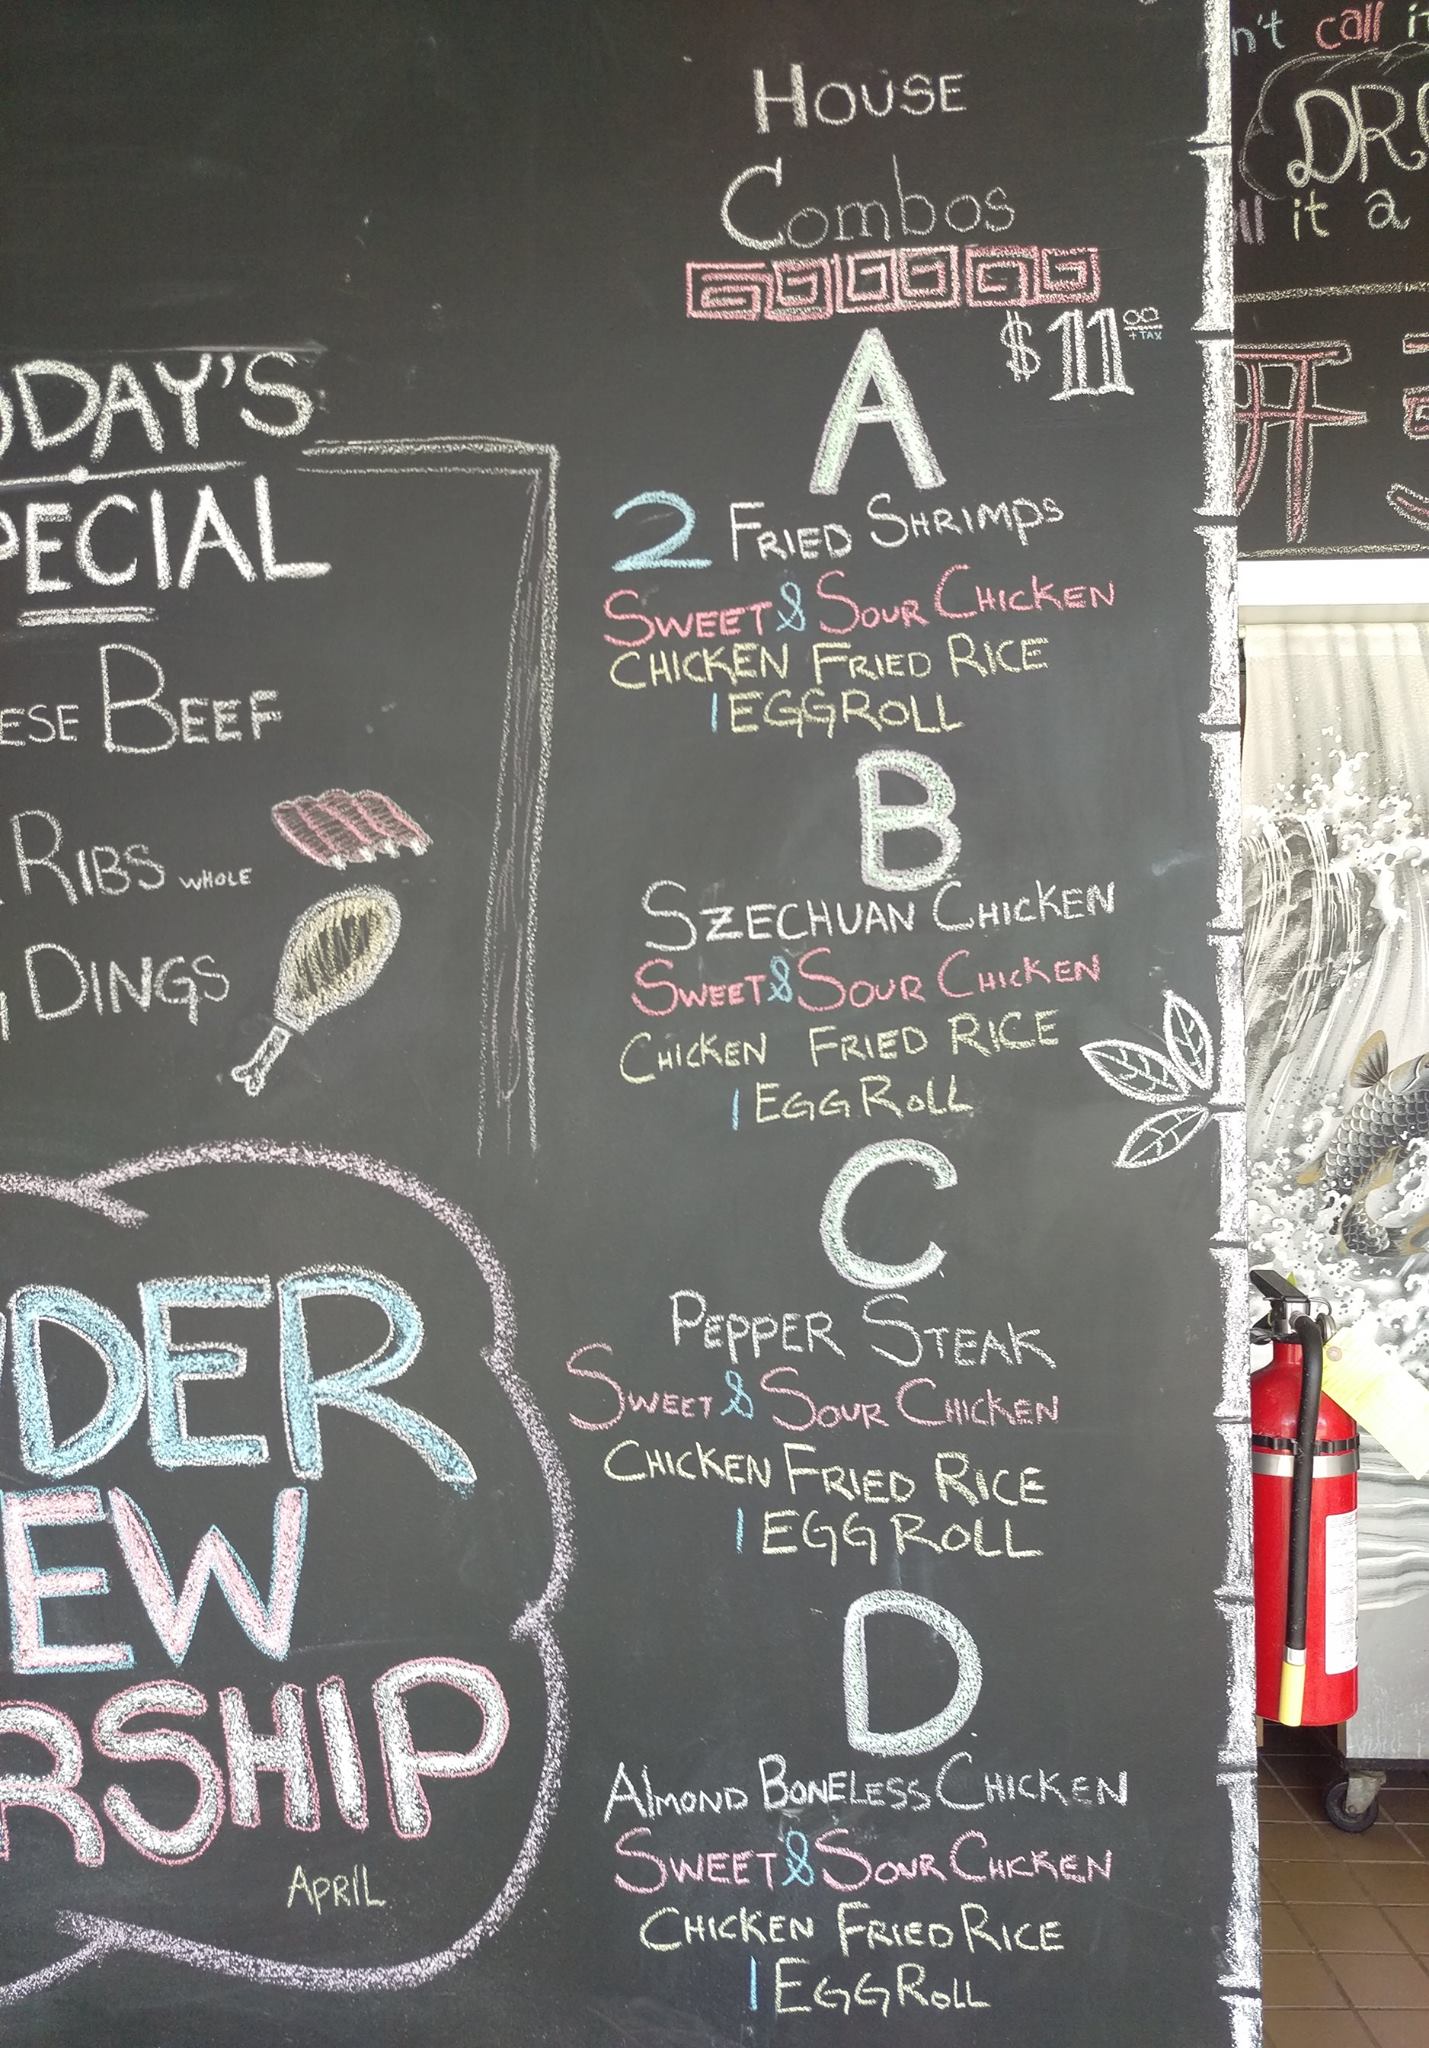 HOUSE
Combos
$11.00
+ TAX
A
2 FRIED SHRIMPS
SWEET & SOUR CHICKEN
CHICKEN FRIED RICE
1 EGGROLL
B
SZECHUAN CHICKEN
SWEET & SOUR CHICKEN
CHICKEN FRIED RICE
1 EGG ROLL
C
PEPPER STEAK
SWEET & SOUR CHICKEN
CHICKEN FRIED RICE
1 EGG ROLL
D
Almond BONELESS CHICKEN
SWEET & SOUR CHICKEN
CHICKEN FRIED RICE
1 EGG ROLL
ODAY'S
PECIAL
ESE BEEF
RIBS WHOLE
DINGS
DER
EW
RSHIP
APRIL
n't call it
DR
ll it a
开